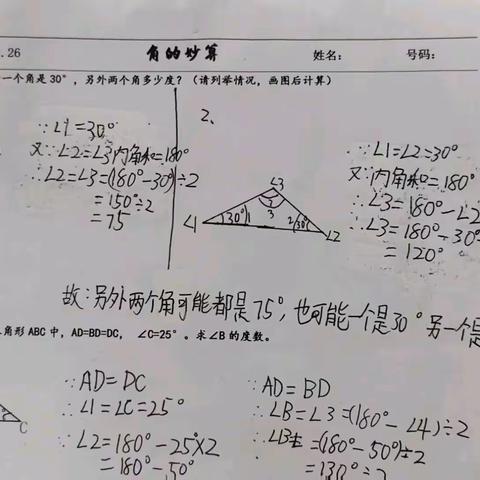 .26 角的妙算 姓名: 号码:
一个角是30°,另外两个角多少度?(请列举情况,画图后计算)
∵∠1=30°
又∵∠2=∠3内角和=180°
∴∠2=∠3=(180°-30°)÷2
=150°÷2
=75
2、
∠3
3
∠1 30° 1 2 30° ∠2
∵∠1=∠2=30°
又∵内角和=180°
∴∠3=180°-∠2
∴∠3=180°-30°
=120°
故:另外两个角可能都是75°,也可能一个是30°另一个是
角形ABC中,AD=BD=DC, ∠C=25°。求∠B的度数。
C
∵AD=DC
∴∠1=∠C=25°
∴∠2=180°-25°×2
=180°-50°
∵AD=BD
∴∠B=∠3=(180°-∠4)÷2
∴∠B=(180°-50°)÷2
=130°÷2